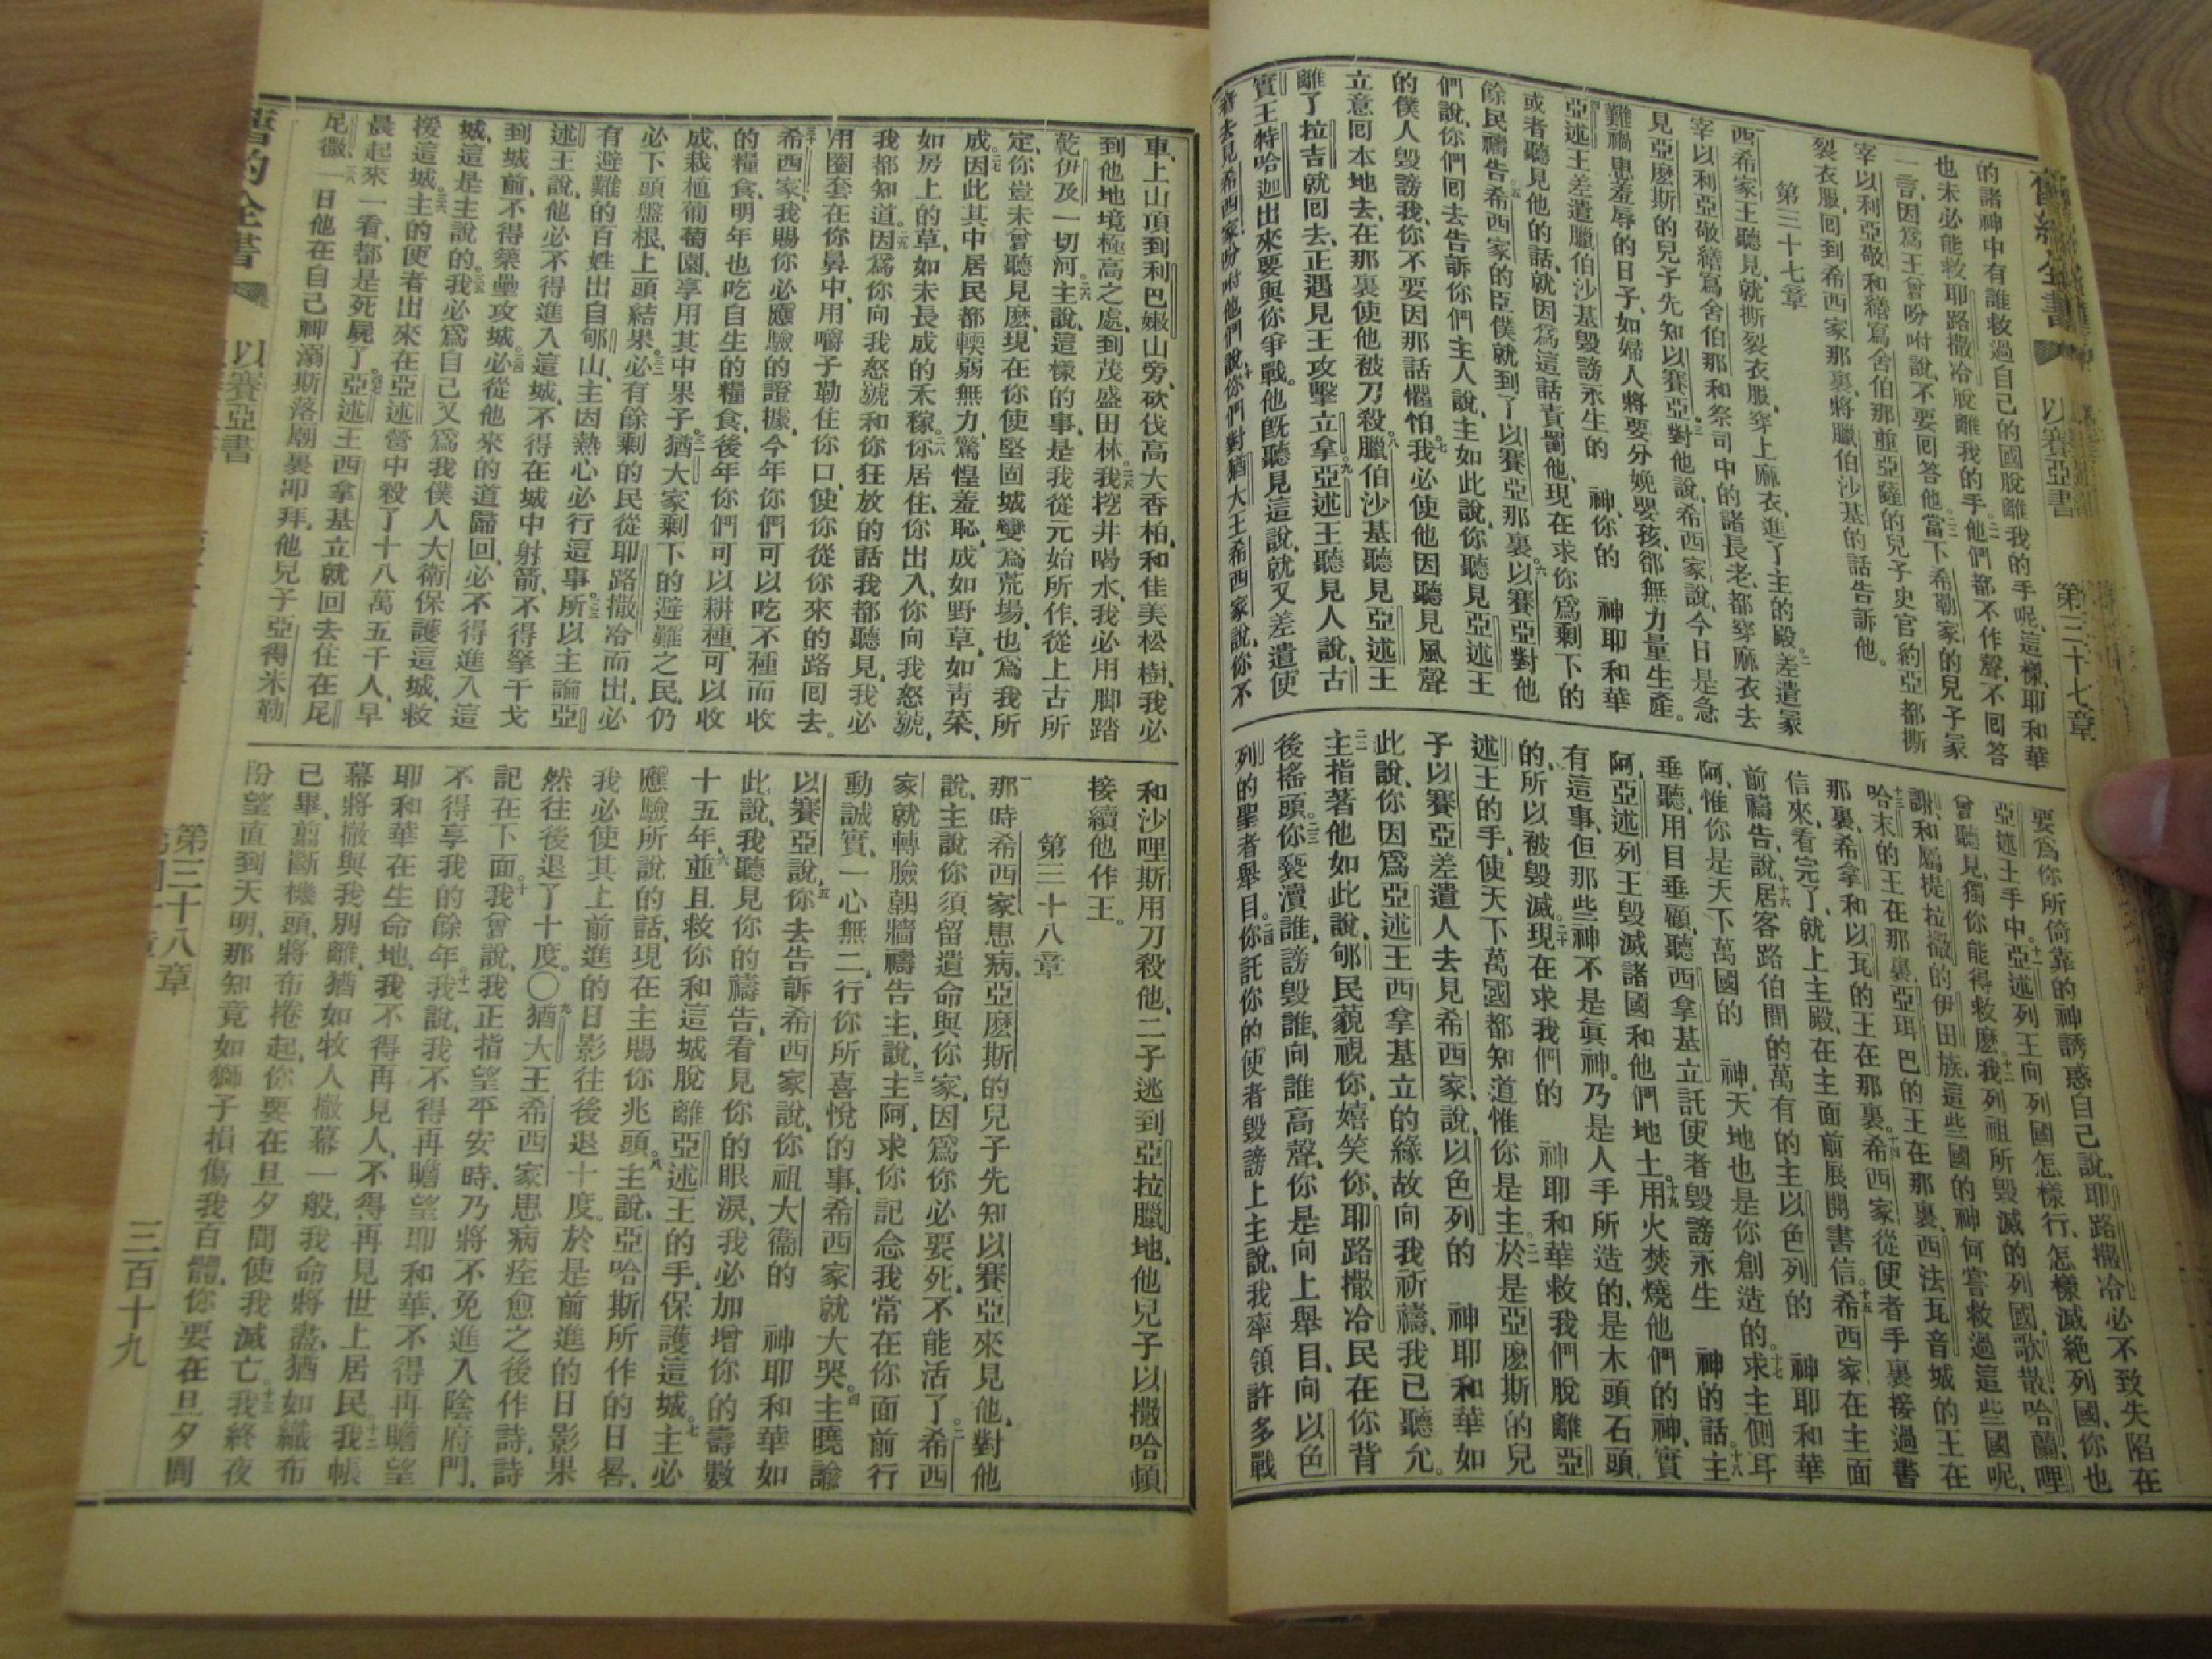 舊約全書
以賽亞書
第三十七章
的諸神中有誰救過自己的國脫離我的手呢、這樣、耶和華
也未必能救耶路撒冷脫離我的手。二一他們都不作聲、不囘答
一言、因爲王曾吩咐說、不要囘答他。二二當下希勒家的兒子家
宰以利亞敬、和繕寫舍伯那、並亞薩的兒子史官約亞、都撕
裂衣服、囘到希西家那裏、將臘伯沙基的話告訴他。
第三十七章
一希西家王聽見、就撕裂衣服、穿上麻衣、進了主的殿。二差遣家
宰以利亞敬、繕寫舍伯那、和祭司中的諸長老、都穿麻衣、去
見亞麼斯的兒子先知以賽亞。三對他說、希西家說、今日是急
難禍患羞辱的日子、如婦人將要分娩嬰孩、卻無力量生產。
四亞述王差遣臘伯沙基毀謗永生的 神、你的 神耶和華
或者聽見他的話、就因爲這話責罰他、現在求你爲剩下的
餘民禱告。五希西家的臣僕就到了以賽亞那裏。六以賽亞對他
們說、你們囘去告訴你們主人說、主如此說、你聽見亞述王
的僕人毀謗我、你不要因那話懼怕。七我必使他因聽見風聲
立意囘本地去、在那裏使他被刀殺。八臘伯沙基聽見亞述王
離了拉吉就囘去、正遇見王攻擊立拿。九亞述王聽見人說、古
實王特哈迦出來要與你爭戰。他旣聽見這說、就又差遣使
者去見希西家、吩咐他們說、十你們對猶大王希西家說、你不
要爲你所倚靠的神誘惑自己說、耶路撒冷必不致失陷在
亞述王手中。十一亞述列王向列國怎樣行、怎樣滅絕列國、你也
曾聽見、獨你能得救麼。十二我列祖所毀滅的列國、歌散、哈蘭、哩
謝、和屬提拉撒的伊田族、這些國的神何嘗救過這些國呢。
十三哈末的王在那裏、亞珥巴的王在那裏、西法瓦音城的王在
那裏、希拿和以瓦的王在那裏。十四希西家從使者手裏接過書
信來、看完了、就上主殿、在主面前展開書信。十五希西家在主面
前禱告、說、十六居客路伯間的萬有的主、以色列的 神耶和華
阿、惟你是天下萬國的 神、天地也是你創造的。十七求主側耳
垂聽、用目垂顧、聽西拿基立託使者毀謗永生 神的話。十八主
阿、亞述列王毀滅諸國和他們地土。十九用火焚燒他們的神、實
有這事、但那些神不是眞神、乃是人手所造的、是木頭石頭
的、所以被毀滅。二十現在求我們的 神耶和華救我們脫離亞
述王的手、使天下萬國都知道惟你是主。二一於是亞麼斯的兒
子以賽亞差遣人去見希西家、說、以色列的 神耶和華如
此說、你因爲亞述王西拿基立的緣故向我祈禱、我已聽允。
二二主指著他如此說、郇民藐視你、嬉笑你、耶路撒冷民在你背
後搖頭。二三你褻瀆誰、謗毀誰、向誰高聲、你是向上舉目、向以色
列的聖者舉目。二四你託你的使者毀謗上主說、我率領許多戰
車、上山頂、到利巴嫩山旁、砍伐高大香柏、和佳美松樹、我必
到他地境極高之處、到茂盛田林。二五我挖井喝水、我必用脚踏
乾伊及一切河。二六主說、這樣的事、是我從元始所作、從上古所
定、你豈未曾聽見麼、現在你使堅固城變爲荒場、也爲我所
成。二七因此其中居民都輭弱無力、驚惶羞恥、成如野草、如靑菜、
如房上的草、如未長成的禾稼。二八你居住、你出入、你向我怒號、
我都知道。二九因爲你向我怒號和你狂放的話、我都聽見、我必
用圈套在你鼻中、用嚼子勒住你口、使你從你來的路囘去。
三十希西家、我賜你必應驗的證據、今年你們可以吃不種而收
的糧食、明年也吃自生的糧食、後年你們可以耕種、可以收
成、栽植葡萄園、享用其中果子。三一猶大家剩下的避難之民、仍
必下頭盤根、上頭結果。三二必有餘剩的民從耶路撒冷而出、必
有避難的百姓出自郇山、主因熱心必行這事。三三所以主論亞
述王說、他必不得進入這城、不得在城中射箭、不得拏干戈
到城前、不得築壘攻城。三四必從他來的道歸回、必不得進入這
城、這是主說的。三五我必爲自己又爲我僕人大衛保護這城、救
援這城。三六主的使者出來、在亞述營中殺了十八萬五千人、早
晨起來一看、都是死屍了。三七亞述王西拿基立就回去、住在尼
尼微。三八一日他在自己神溺斯落廟裏叩拜、他兒子亞得米勒
和沙哩斯用刀殺他、二子逃到亞拉臘地、他兒子以撒哈頓
接續他作王。
第三十八章
一那時希西家患病、亞麼斯的兒子先知以賽亞來見他、對他
說、主說你須留遺命與你家、因爲你必要死、不能活了。二希西
家就轉臉朝牆禱告主、說、三主阿、求你記念我常在你面前行
動誠實、一心無二、行你所喜悅的事、希西家就大哭。四主曉諭
以賽亞說、五你去告訴希西家說、你祖大衞的 神耶和華如
此說、我聽見你的禱告、看見你的眼淚、我必加增你的壽數
十五年。六並且救你和這城脫離亞述王的手、保護這城。七主必
應驗所說的話、現在主賜你兆頭。八主說、亞哈斯所作的日晷、
我必使其上前進的日影往後退十度、於是前進的日影果
然往後退了十度。〇九猶大王希西家患病痊愈之後作詩、詩
記在下面。十我曾說、我正指望平安時、乃將不免進入陰府門、
不得享我的餘年。十一我說、我不得再瞻望耶和華、不得再瞻望
耶和華在生命地、我不得再見人、不得再見世上居民。十二我帳
幕將撤與我別離、猶如牧人撤幕一般、我命將盡、猶如織布
已畢、翦斷機頭、將布捲起、你要在旦夕間使我滅亡。十三我終夜
盼望直到天明、那知竟如獅子損傷我百體、你要在旦夕間
舊約全書
以賽亞書
第三十八章
三百十九